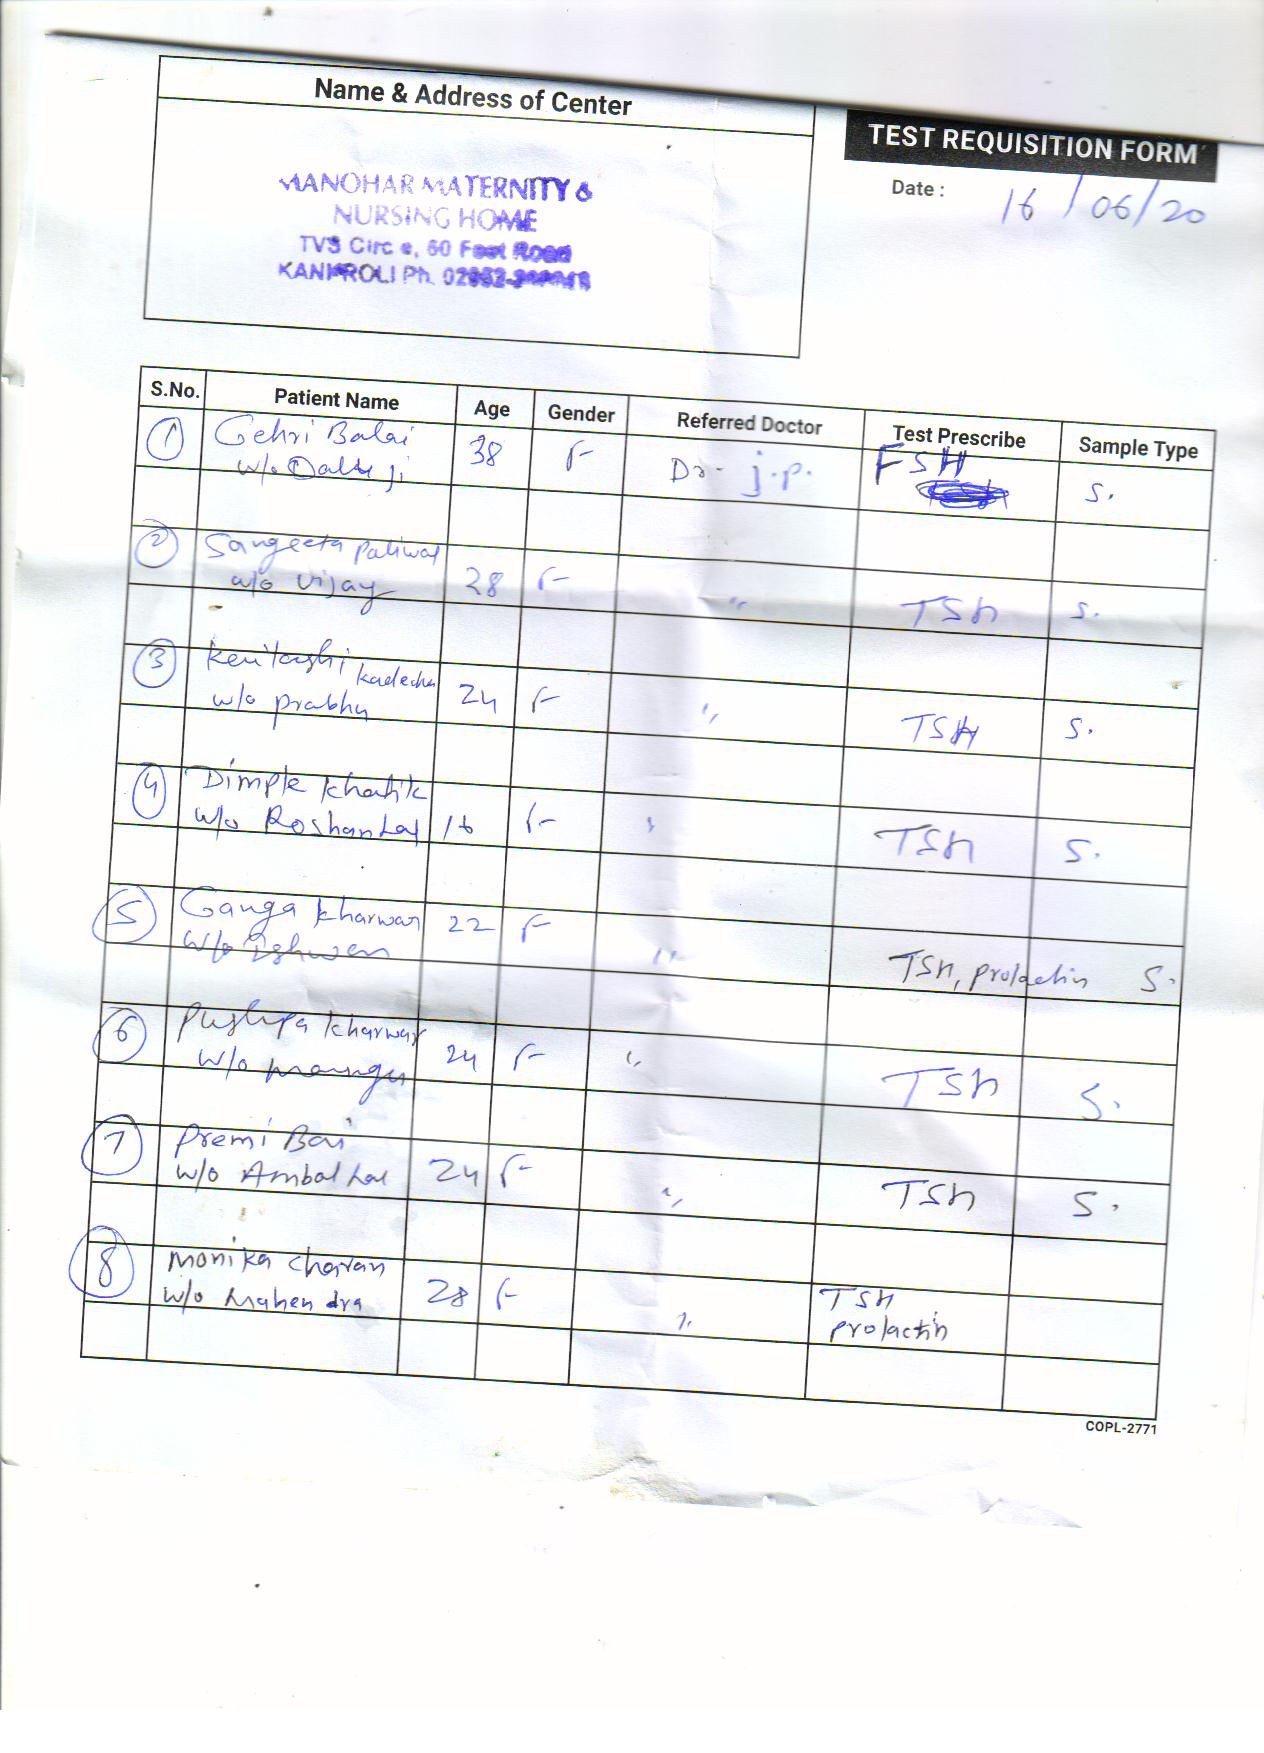 Name & Address of Center
TEST REQUISITION FORM
Date : 16/06/20
MANOHAR MATERNITY &
NURSING HOME
TVS Circ e, 60 Feet Road
KANKROLI Ph. 02952-
S.No. Patient Name Age Gender Referred Doctor Test Prescribe Sample Type
1 Gehri Balai 38 F Dr. J.P. FSH S.
w/o Dalu ji
2 Sangeeta Paliwal 28 F " TSH S.
w/o Vijay
3 24 F " TSH S.
w/o Prabhu
4 Dimple Khatik
w/o Roshan Lal 16 F " TSH S.
5 Ganga Kharwar 22 F " TSH, Prolactin S.
w/o Ishwer
6 Pushpa Kharwar 24 F " TSH S.
w/o
7 Premi Bai
w/o Ambalal 24 F " TSH S.
8 Monika Charan 28 F " TSH
w/o Mahendra Prolactin
COPL-2771